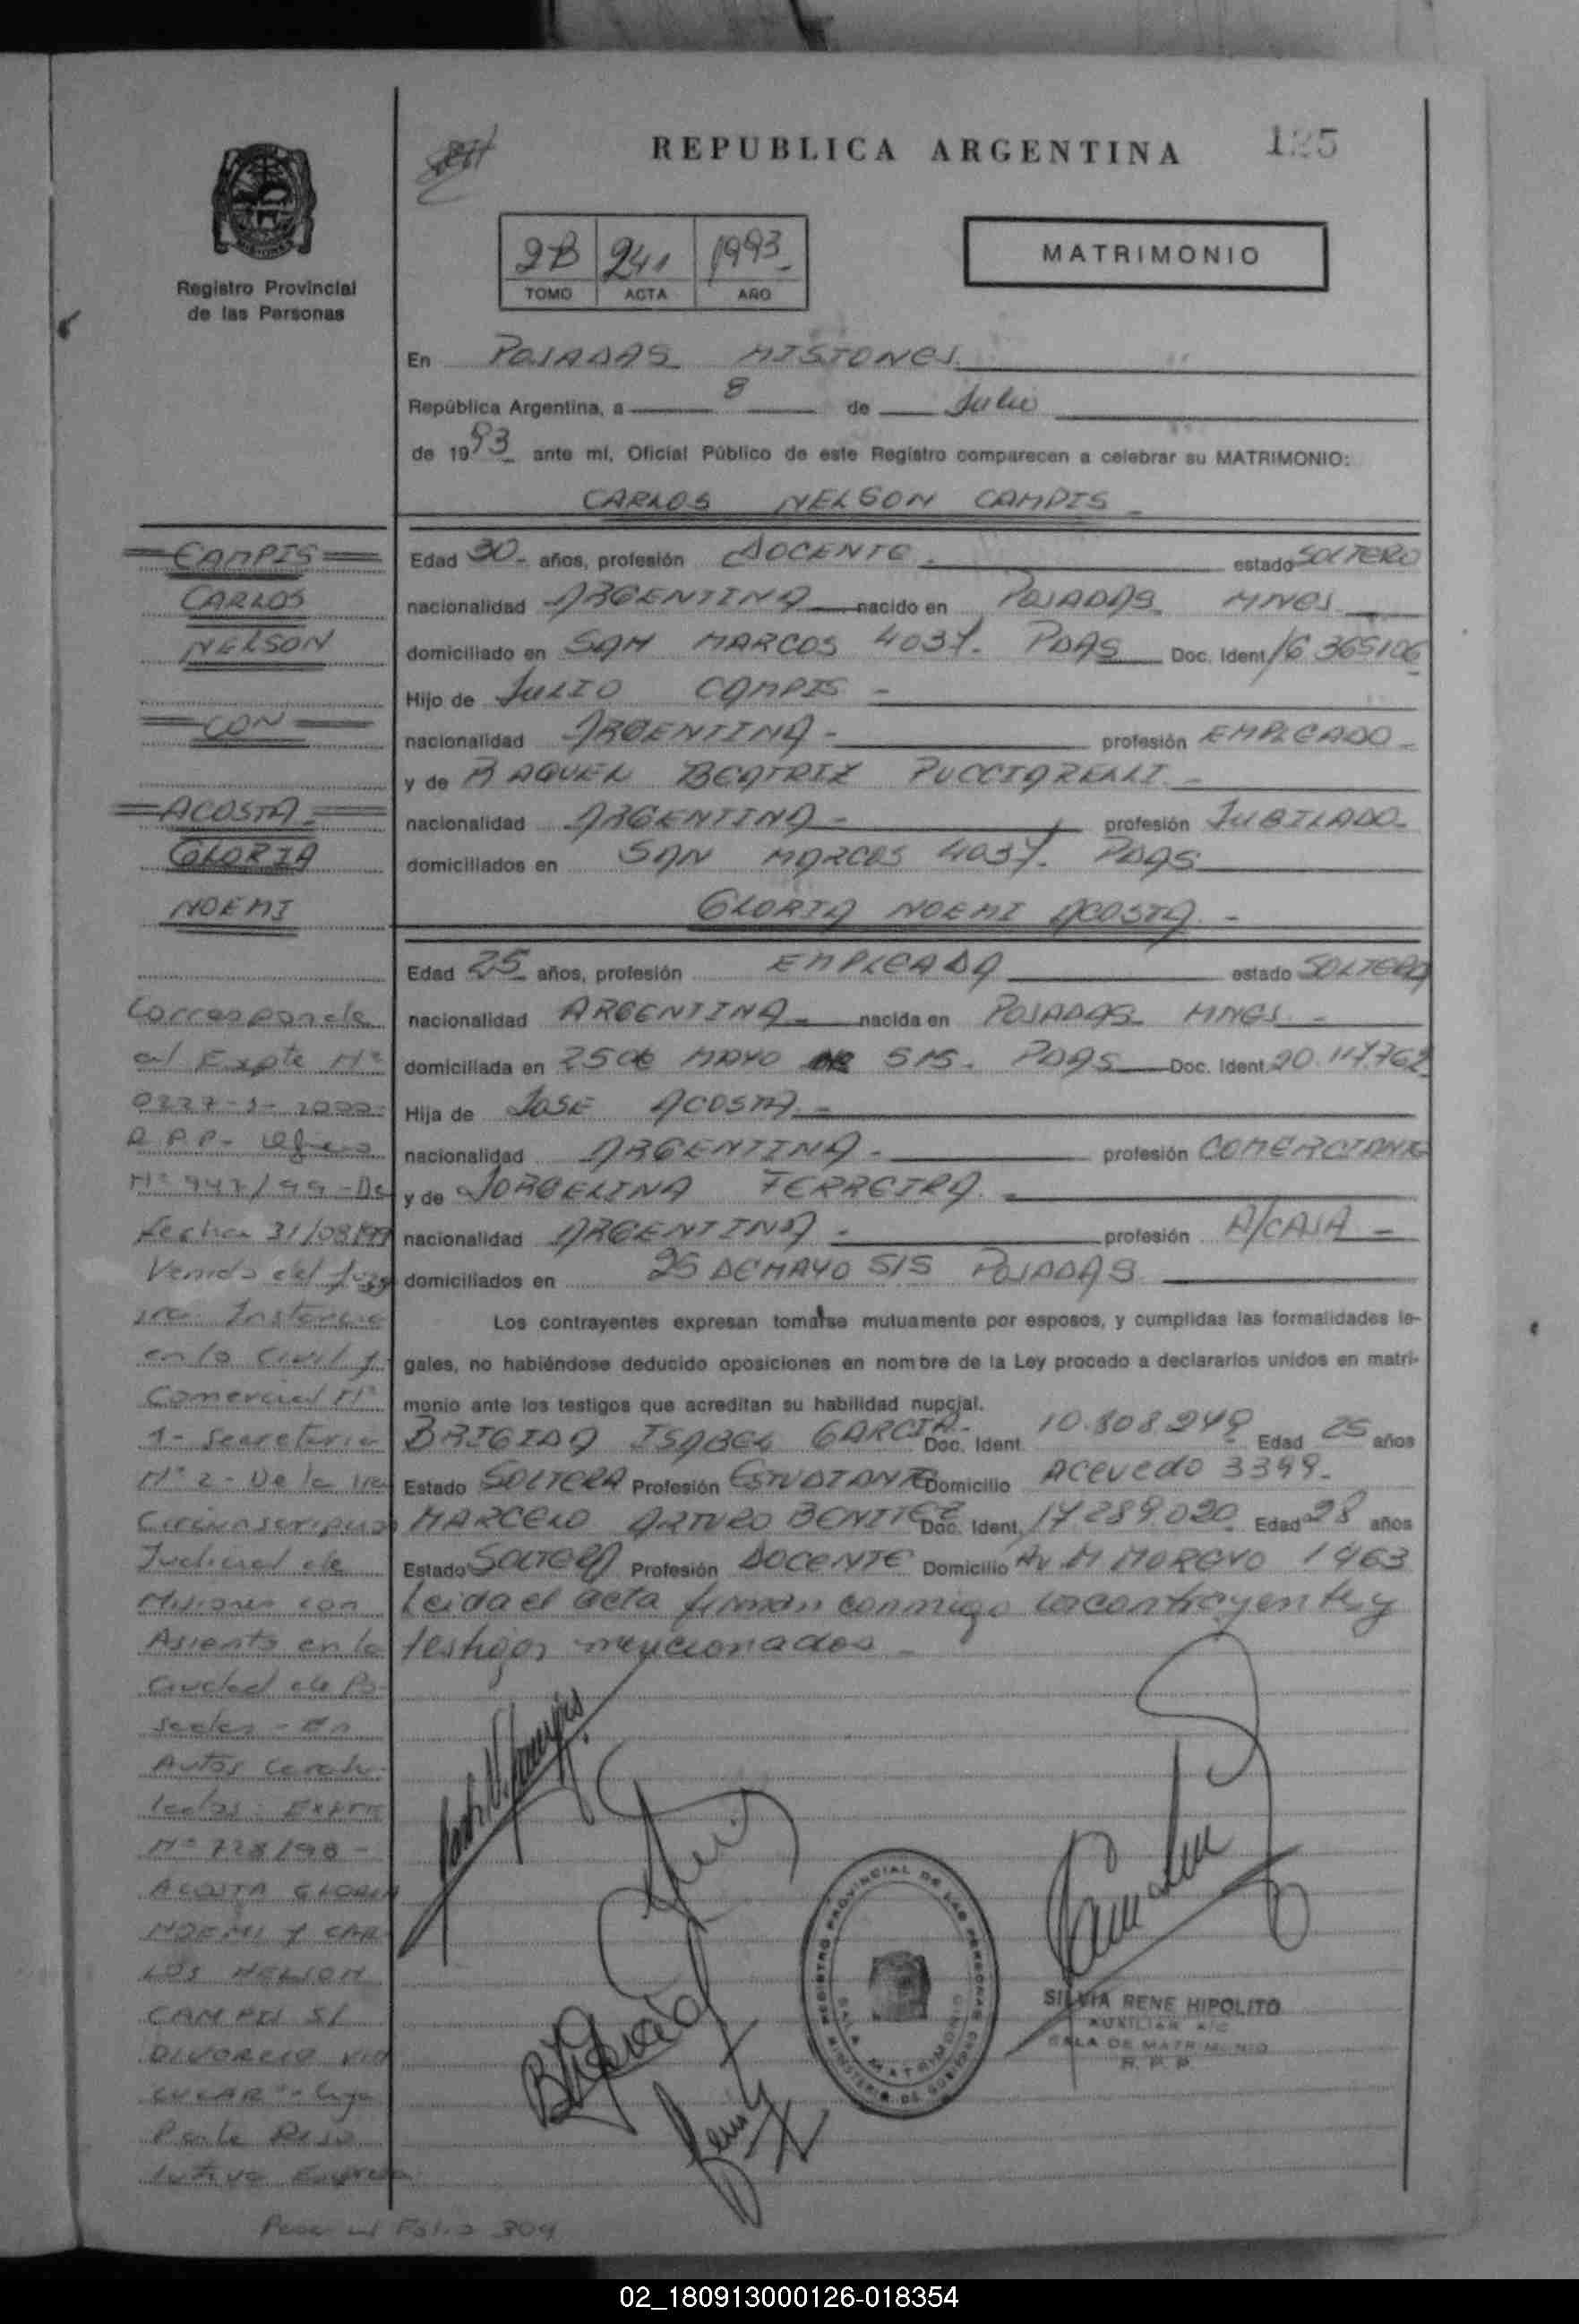 REPUBLICA ARGENTINA 125
Registro Provincial
de las Personas
2B 241 1993
TOMO ACTA AÑO
MATRIMONIO
En POSADAS MISIONES
República Argentina, a 8 de Julio
de 1993 ante mí, Oficial Público de este Registro comparecen a celebrar su MATRIMONIO:
CARLOS NELSON CAMPIS
Edad 30 años, profesión DOCENTE estado SOLTERO
nacionalidad ARGENTINA nacido en POSADAS MNES
domiciliado en SAN MARCOS 4037. PDAS Doc. Ident. 16 365106
Hijo de JULIO CAMPIS
nacionalidad ARGENTINA profesión EMPLEADO
y de RAQUEL BEATRIZ PUCCIARELLI
nacionalidad ARGENTINA profesión JUBILADO
domiciliados en SAN MARCOS 4037. PDAS
GLORIA NOEMI ACOSTA
Edad 25 años, profesión EMPLEADA estado SOLTERA
nacionalidad ARGENTINA nacida en POSADAS MNES
domiciliada en 25 de MAYO 515. PDAS Doc. Ident. 20.117.762
Hija de JOSE ACOSTA
nacionalidad ARGENTINA profesión COMERCIANTE
y de JORGELINA FERREIRA
nacionalidad ARGENTINA profesión A/CASA
domiciliados en 25 DE MAYO 515 POSADAS
Los contrayentes expresan tomarse mutuamente por esposos, y cumplidas las formalidades le-
gales, no habiéndose deducido oposiciones en nombre de la Ley procedo a declararlos unidos en matri-
monio ante los testigos que acreditan su habilidad nupcial.
BRIGIDA ISABEL GARCIA Doc. Ident. 10.808.249 Edad 25 años
Estado SOLTERA Profesión ESTUDIANTE Domicilio Acevedo 3399
MARCELO ARTURO BENITEZ Doc. Ident. 17.289.020 Edad 28 años
Estado SOLTERO Profesión DOCENTE Domicilio Av M MORENO 1463
Leida el acta firman conmigo los contrayentes y
testigos mencionados
CAMPIS
CARLOS
NELSON
CON
ACOSTA
GLORIA
NOEMI
Corresponde
al Expte Nº
0227-J-2000
R.P.P.- Oficio
Nº 947/99 - De
fecha 31/08/99
Venido del Juzg
1ra. Instancia
en lo Civil y
Comercial Nº
1 - Secretaria
Nº 2 - De la 1ra
Circunscripcion
Judicial de
Misiones con
Asiento en la
Ciudad de Po-
sadas - En
Autos Caratu-
lados: EXPTE
Nº 728/98 -
ACOSTA GLORIA
NOEMI Y CAR
LOS NELSON
CAMPIS S/
DIVORCIO VIN
CULAR" Cuya
Parte Reso
lutiva Expresa
Pasa al Folio 309
REGISTRO PROVINCIAL DE LAS PERSONAS
MINISTERIO DE GOBIERNO
SALA MATRIMONIO
SILVIA RENE HIPOLITO
AUXILIAR A/C
SALA DE MATRIMONIO
R. P. P.
02_180913000126-018354